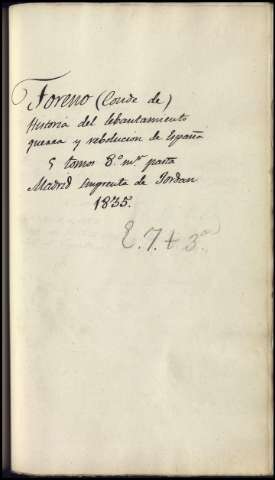 Toreno (Conde de)
Historia del lebantamiento
guerra y rebolucion de España
5 tomos 8.º m.or pasta
Madrid imprenta de Jordan
1835.
E. 7. t 3.a